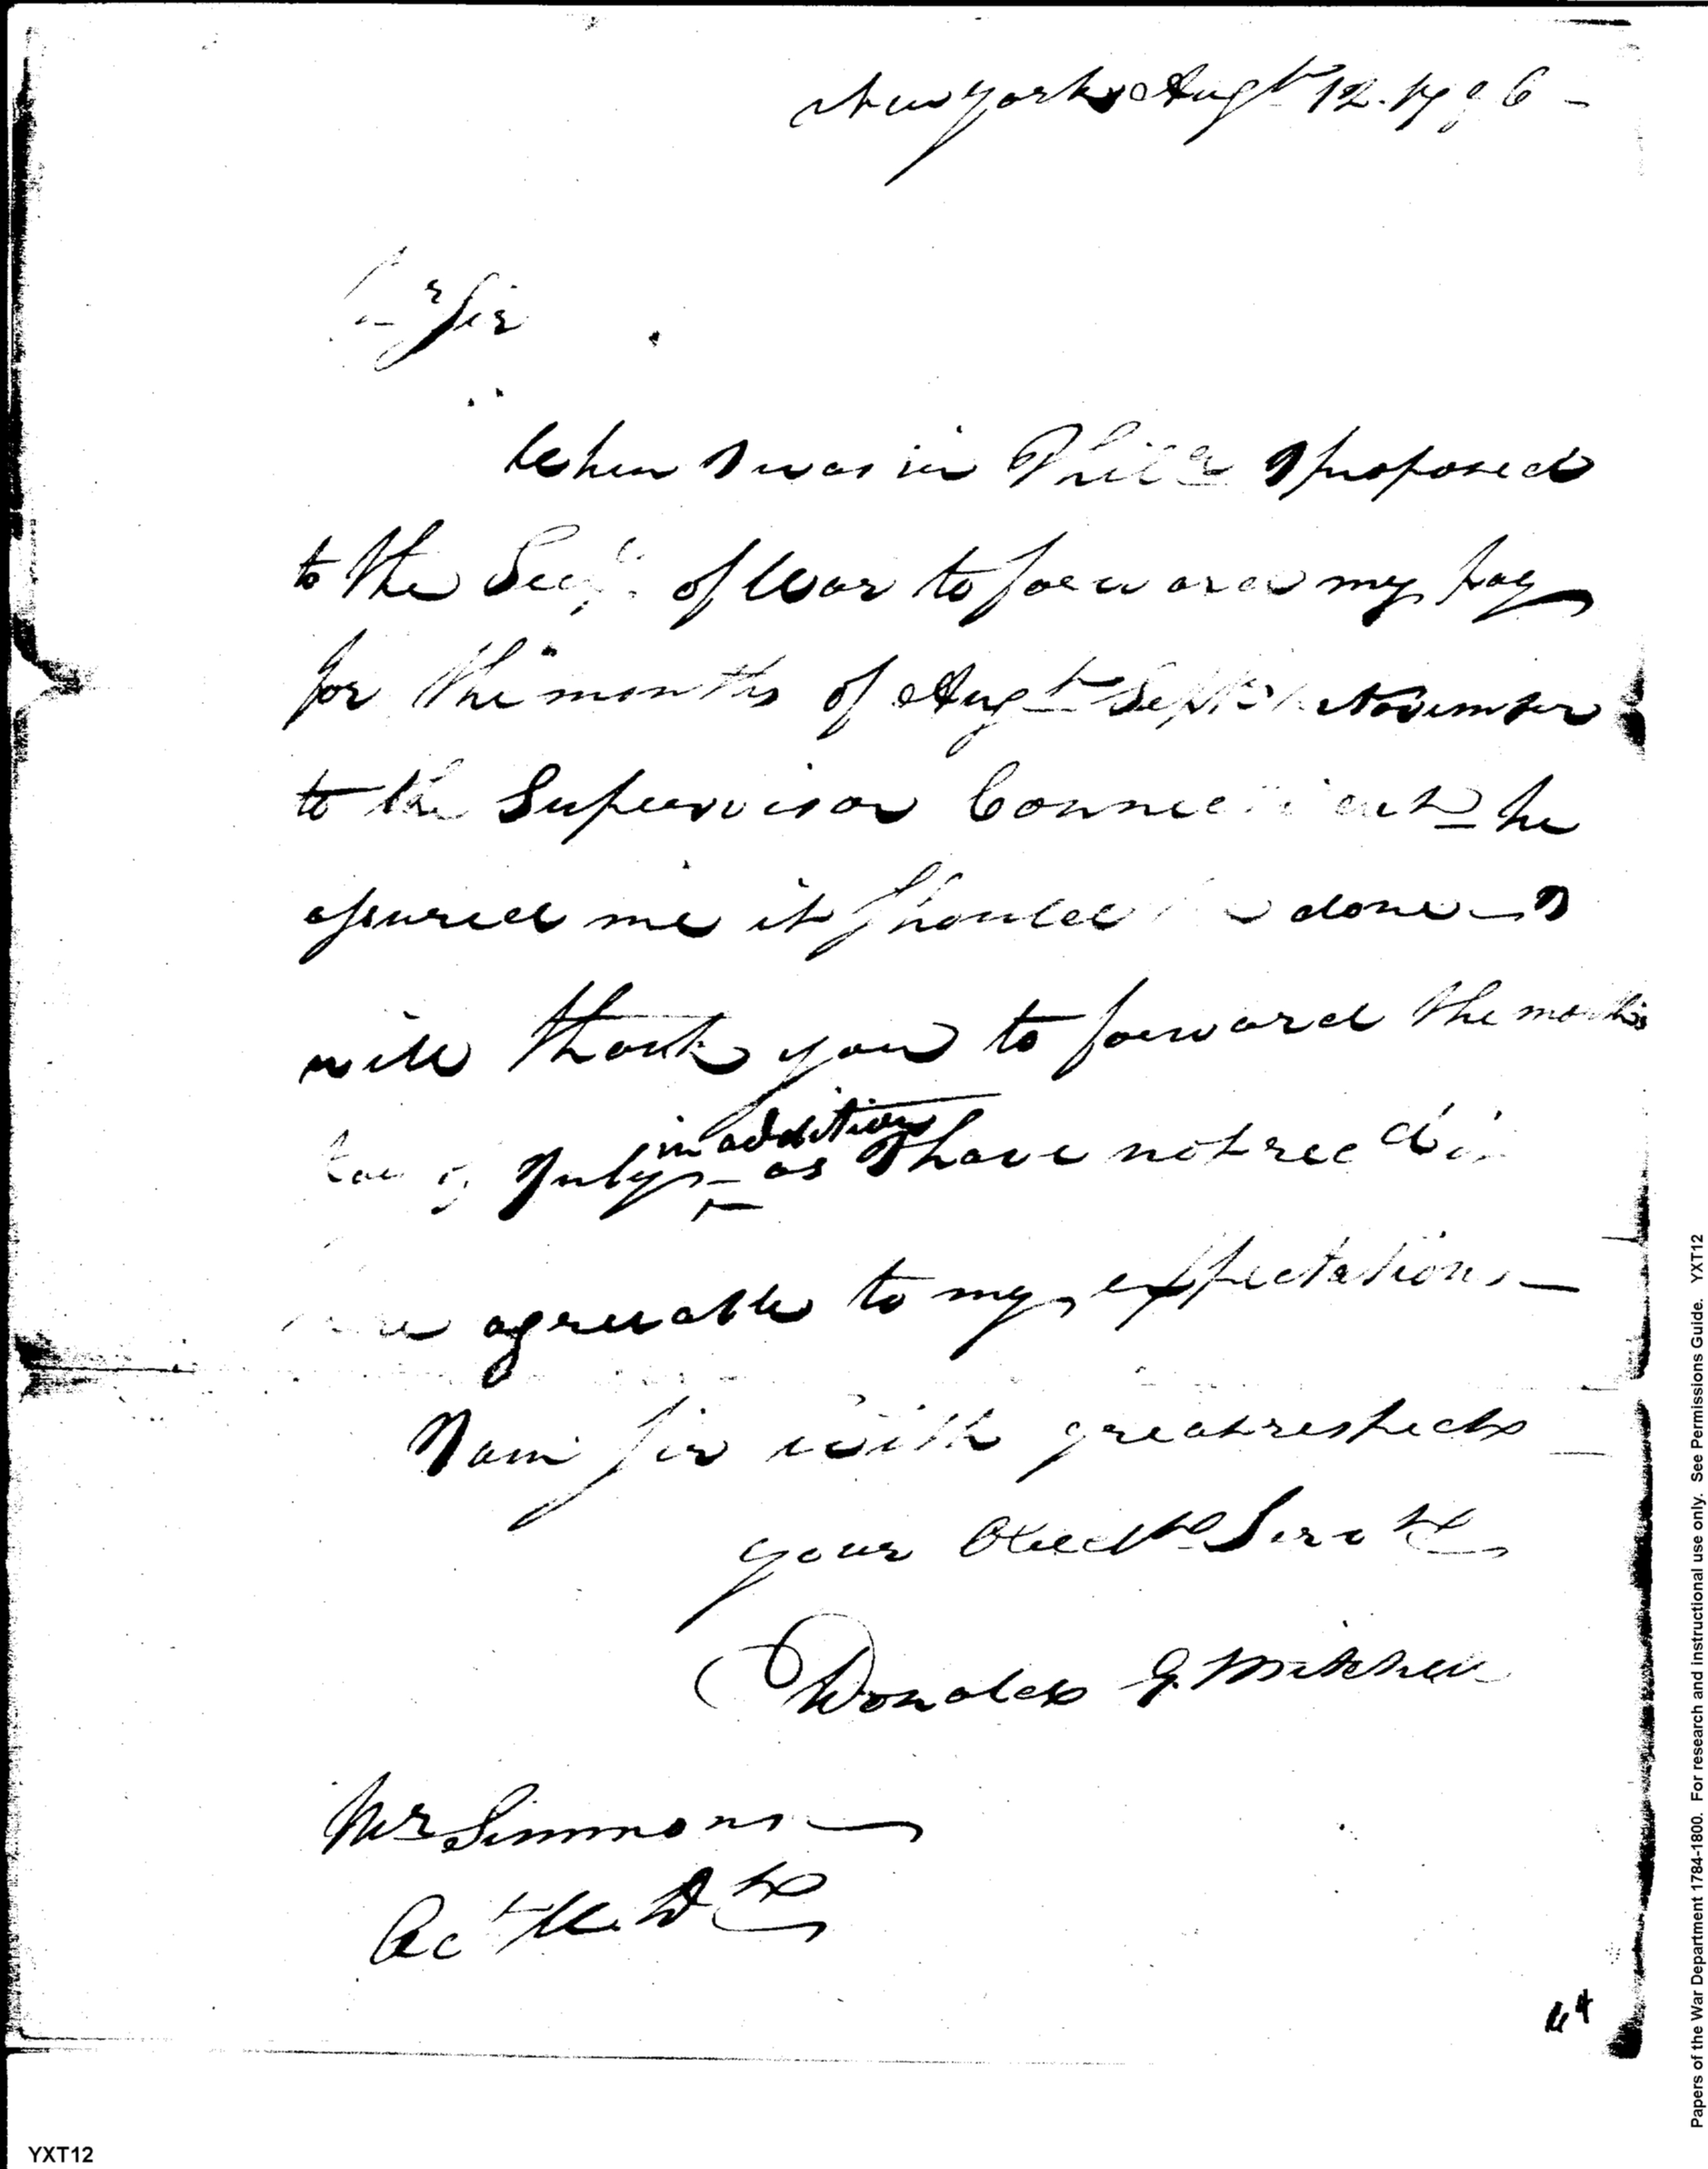 New York Augt 12. 1796 -
Dr Sir
When I was in Phila I proposed
to the Secy. of War to forward my pay
for the months of Augt Septr & November
to the Supervisor Connecticut he
assured me it should be done - I
will thank you to forward the months
pay of July in addition - as I have not recd it
here agreeable to my expectations -
I am Sir with great respect
your Obedt Servt
Donald G. Mitchell
Mr Simmons
Act W. Dt
44
Papers of the War Department 1784-1800. For research and instructional use only. See Permissions Guide. YXT12
YXT12